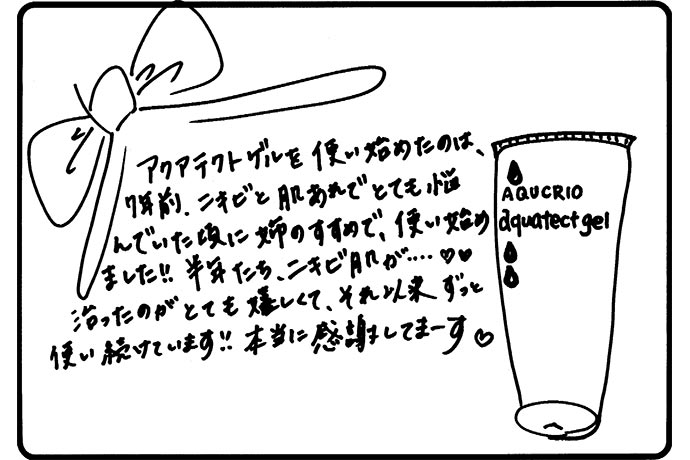 アクアテクトゲルを使い始めたのは、
7年前、ニキビと肌あれでとても悩
んでいた頃に姉のすすめで、使い始め
ました!! 半年たち、ニキビ肌が‥‥♡♡
治ったのがとても嬉しくて、それ以来ずっと
使い続けています!! 本当に感謝してまーす♡
AQUCRIO
aquatect gel